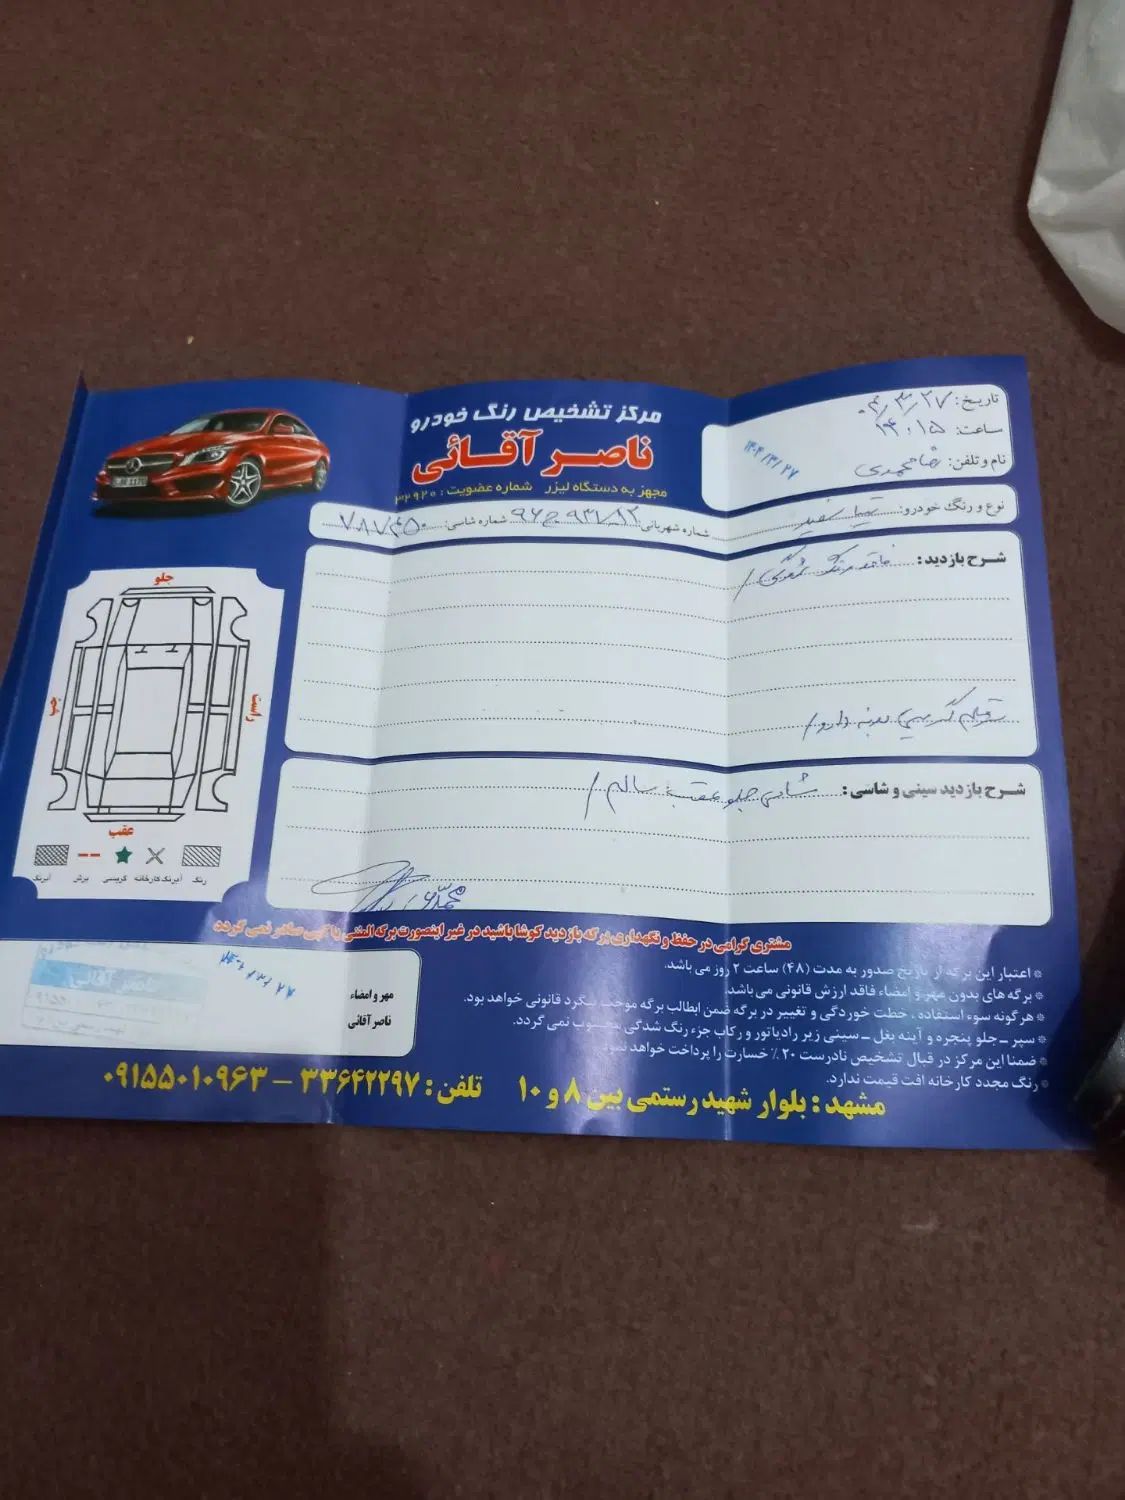 مرکز تشخیص رنگ خودرو
ناصر آقائی
مجهز به دستگاه لیزر شماره عضویت : ۳۲۹۲۰
تاریخ: ۰۴/۳/۲۷
ساعت: ۱۴:۱۵
نام و تلفن: رضا محمدی
۱۴۰۴/۳/۲۷
نوع و رنگ خودرو: تیبا سفید
شماره شهربانی: شماره شاسی: ۷۸۷۴۵۰
شرح بازدید: فاقد رنگ شدگی /
شرح بازدید سینی و شاسی: شاسی جلو عقب سالم /
جلو
راست
چپ
عقب
رنگ آبرنگ کارخانه گریسی برش آبرنگ
مشتری گرامی در حفظ و نگهداری برگه بازدید کوشا باشید در غیر اینصورت برگه المثنی یا کپی صادر نمی گردد.
* اعتبار این برگه از تاریخ صدور به مدت (۴۸) ساعت ۲ روز می باشد.
* برگه های بدون مهر و امضاء فاقد ارزش قانونی می باشد.
* هر گونه سوء استفاده ، خطت خوردگی و تغییر در برگه ضمن ابطالب برگه موجب پیگرد قانونی خواهد بود.
* سپر ـ جلو پنجره و آینه بغل ـ سینی زیر رادیاتور و رکاب جزء رنگ شدگی محسوب نمی گردد.
* ضمنا این مرکز در قبال تشخیص نادرست ۲۰٪ خسارت را پرداخت خواهد نمود.
* رنگ مجدد کارخانه افت قیمت ندارد.
مهر و امضاء
ناصر آقائی
ناصر آقائی
مشهد : بلوار شهید رستمی بین ۸ و ۱۰ تلفن : ۳۳۶۴۲۲۹۷ – ۰۹۱۵۵۰۱۰۹۶۳